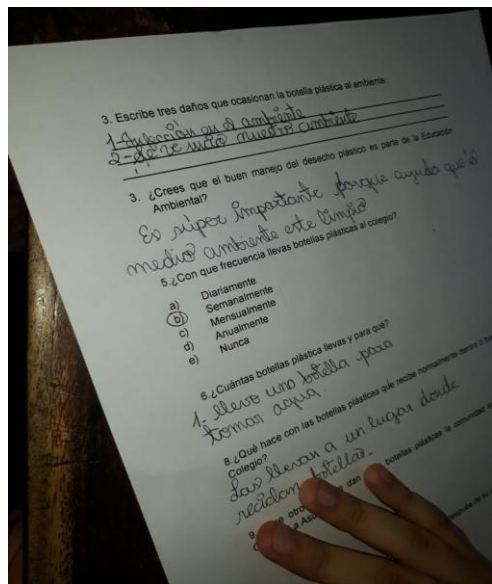 3. Escribe tres daños que ocasionan la botella plástica al ambiente.
1- Infección en el ambiente
2- se ve sucio nuestro ambiente
3. ¿Crees que el buen manejo del desecho plástico es parte de la Educación
Ambiental?
Es súper importante porque ayuda que el
medio ambiente este limpio
5.¿Con que frecuencia llevas botellas plásticas al colegio?
a) Diariamente
b) Semanalmente
c) Mensualmente
d) Anualmente
e) Nunca
6.¿Cuántas botellas plástica llevas y para qué?
1- llevo una botella para
tomar agua
8.¿Qué hace con las botellas plásticas que recibe normalmente dentro o
Colegio?
Las llevan a un lugar donde
reciclan botellas.
9. otro dan botellas plásticas la comunidad
a
después de su